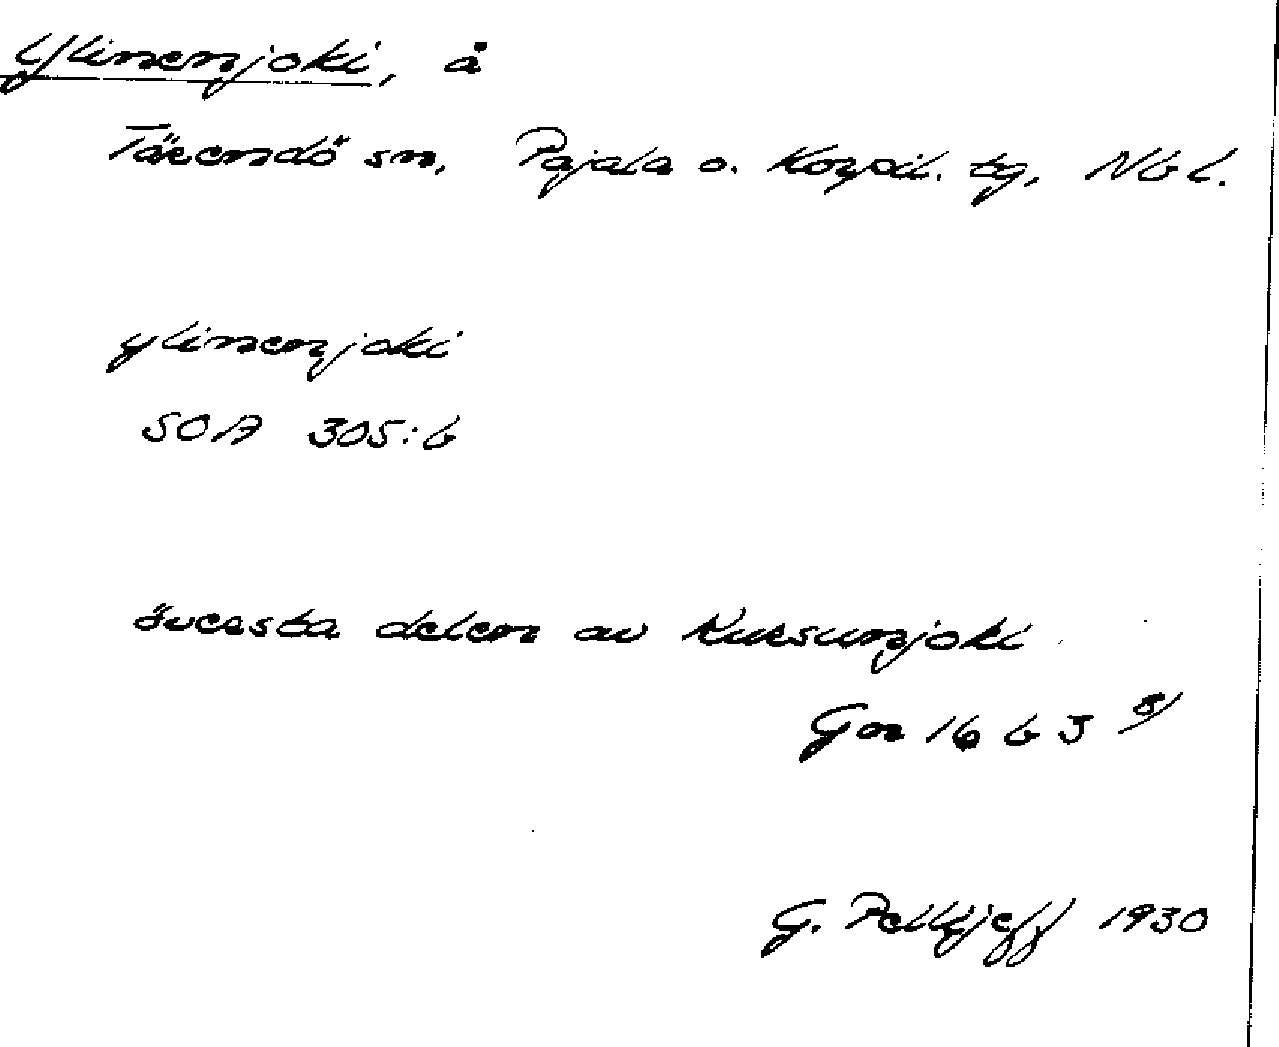 Ylinenjoki, å
Tärendö sn, Pajala o. Korpil. tg, Nb l.
ylinenjoki
SOA 305:6
översta delen av Kursunjoki
Gn 16 b 3
G. Pellijeff 1930